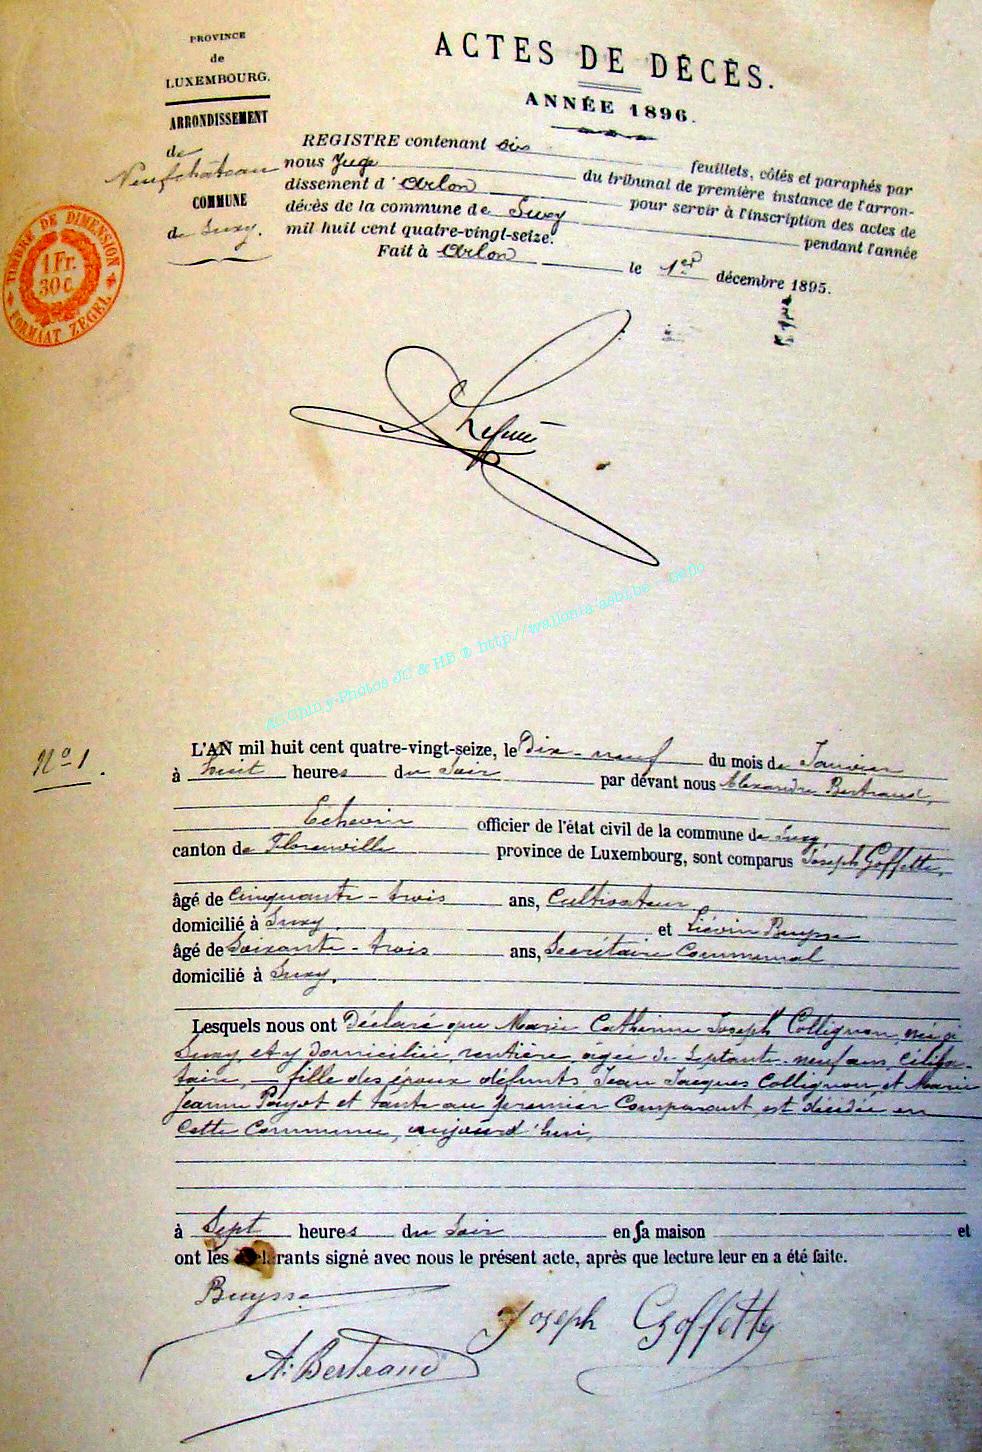 PROVINCE
de
LUXEMBOURG.
ARRONDISSEMENT
de
Neufchâteau
COMMUNE
de Suxy.
TIMBRE DE DIMENSION
1 Fr.
30 c.
FORMAAT ZEGEL
ACTES DE DÉCÈS.
ANNÉE 1896.
REGISTRE contenant six feuillets, côtés et paraphés par
nous Juge du tribunal de première instance de l'arron-
dissement d'Arlon pour servir à l'inscription des actes de
décès de la commune de Suxy pendant l'année
mil huit cent quatre-vingt-seize.
Fait à Arlon le 1er décembre 1895.
AC Chiny-Photos JC & HB © http://wallonia-asbl.be
No 1.
L'AN mil huit cent quatre-vingt-seize, le Dix-neuf du mois de Janvier
à huit heures du Soir par dévant nous Alexandre Bertrand,
Echevin officier de l'état civil de la commune de Suxy,
canton de Florenville province de Luxembourg, sont comparus Joseph Goffette,
âgé de Cinquante-trois ans, Cultivateur
domicilié à Suxy. et Liévin Buysse
âgé de Soixante-trois ans, Secrétaire Communal
domicilié à Suxy.
Lesquels nous ont Déclaré que Marie Catherine Joseph Collignon, née à
Suxy et y domiciliée, rentière, âgée de Septante-neuf ans, céliba-
taire, — fille des époux défunts Jean Jacques Collignon et Marie
Jeanne Payot et tante au premier Comparant est décédée en
cette Commune, aujourd'hui,
à Sept heures du Soir en sa maison et
ont les déclarants signé avec nous le présent acte, après que lecture leur en a été faite.
Buysse
Joseph Goffette
A. Bertrand